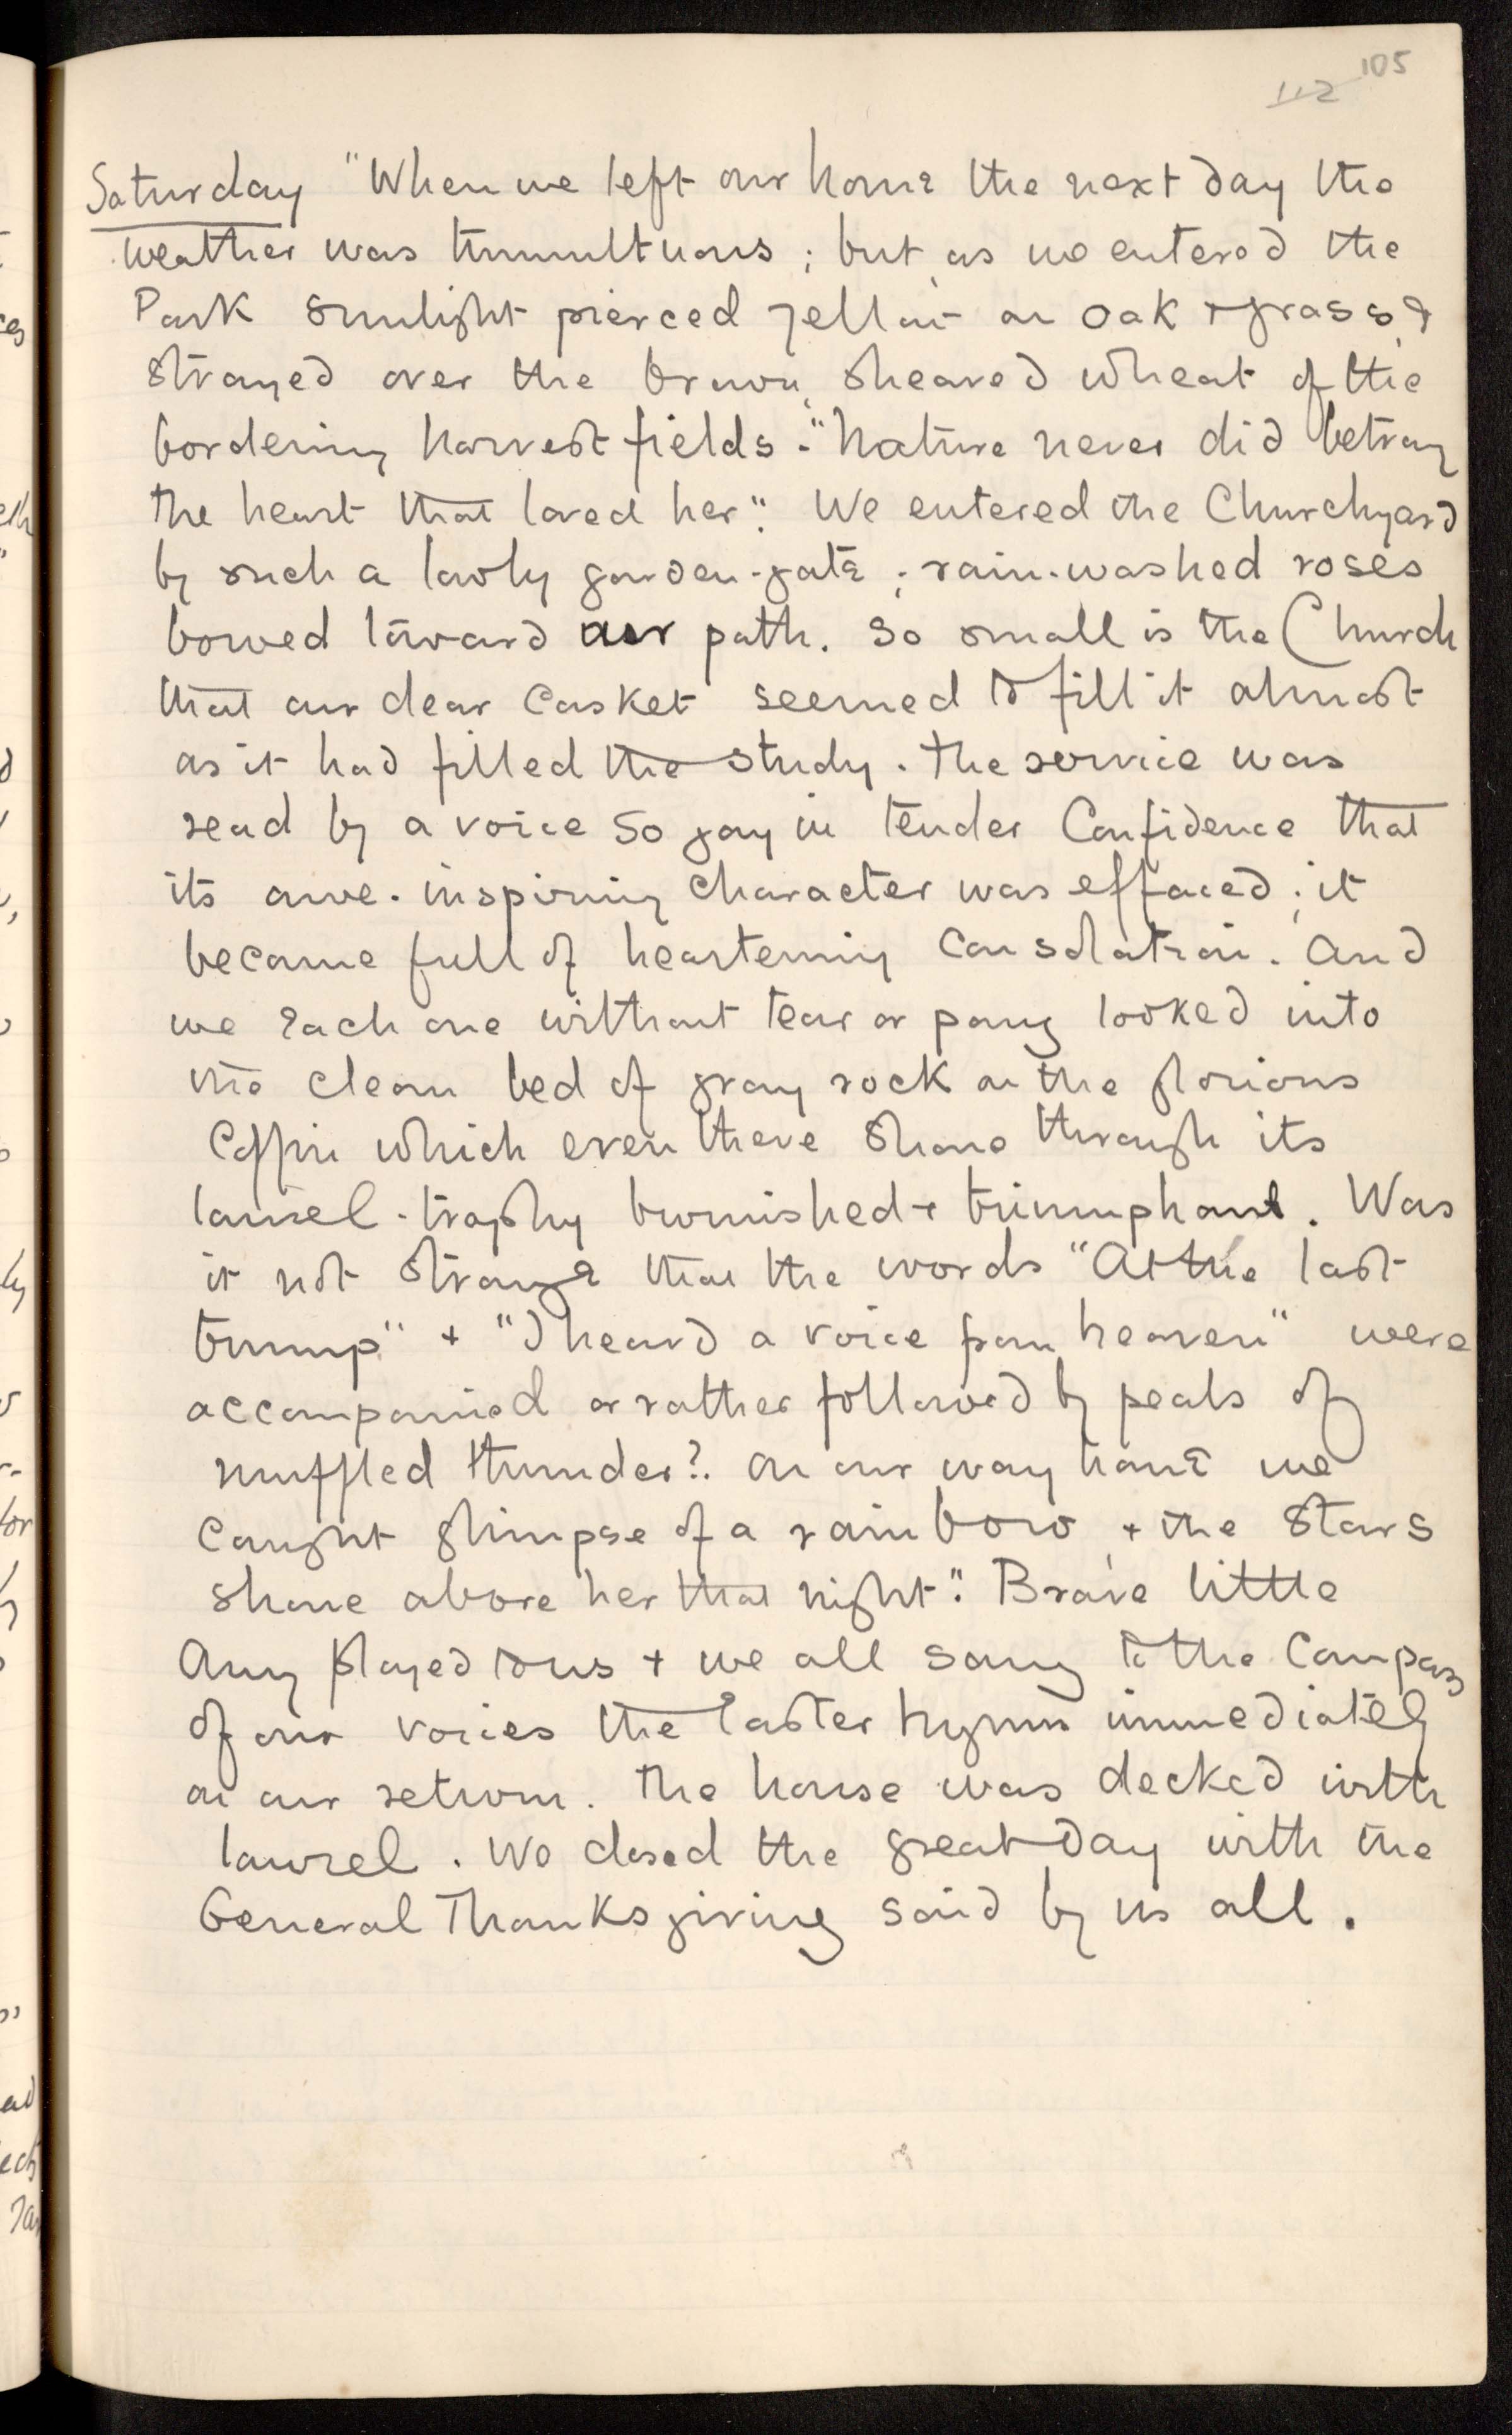 105
112
Saturday "When we left our home the next day the
weather was tumultuous; but as we entered the
Park sunlight pierced yellow on oak + grass, &
strayed over the brown, sheaved wheat of the
bordering harvest fields - "Nature never did betray
the heart that loved her". We entered the Churchyard
by such a lowly garden-gate; rain-washed roses
bowed toward our path. So small is the Church
that our dear Casket seemed to fill it almost
as it had filled the study. The service was
read by a voice so gay in tender Confidence that
its awe-inspiring character was effaced; it
became full of heartening consolation. And
we each one without tear or pang looked into
the clean bed of gray rock on the glorious
Coffin which even there shone through its
laurel-trophy burnished + triumphant. Was
it not strange that the words "At the last
trump" + "I heard a voice from heaven" were
accompanied or rather followed by peals of
muffled thunder?. On our way home we
caught glimpse of a rainbow, + the stars
shone above her that night". Brave little
Amy played to us + we all sang to the Compass
of our voices the Easter hymn immediately
on our return. The house was decked with
laurel. We closed the great day with the
General Thanksgiving said by us all.